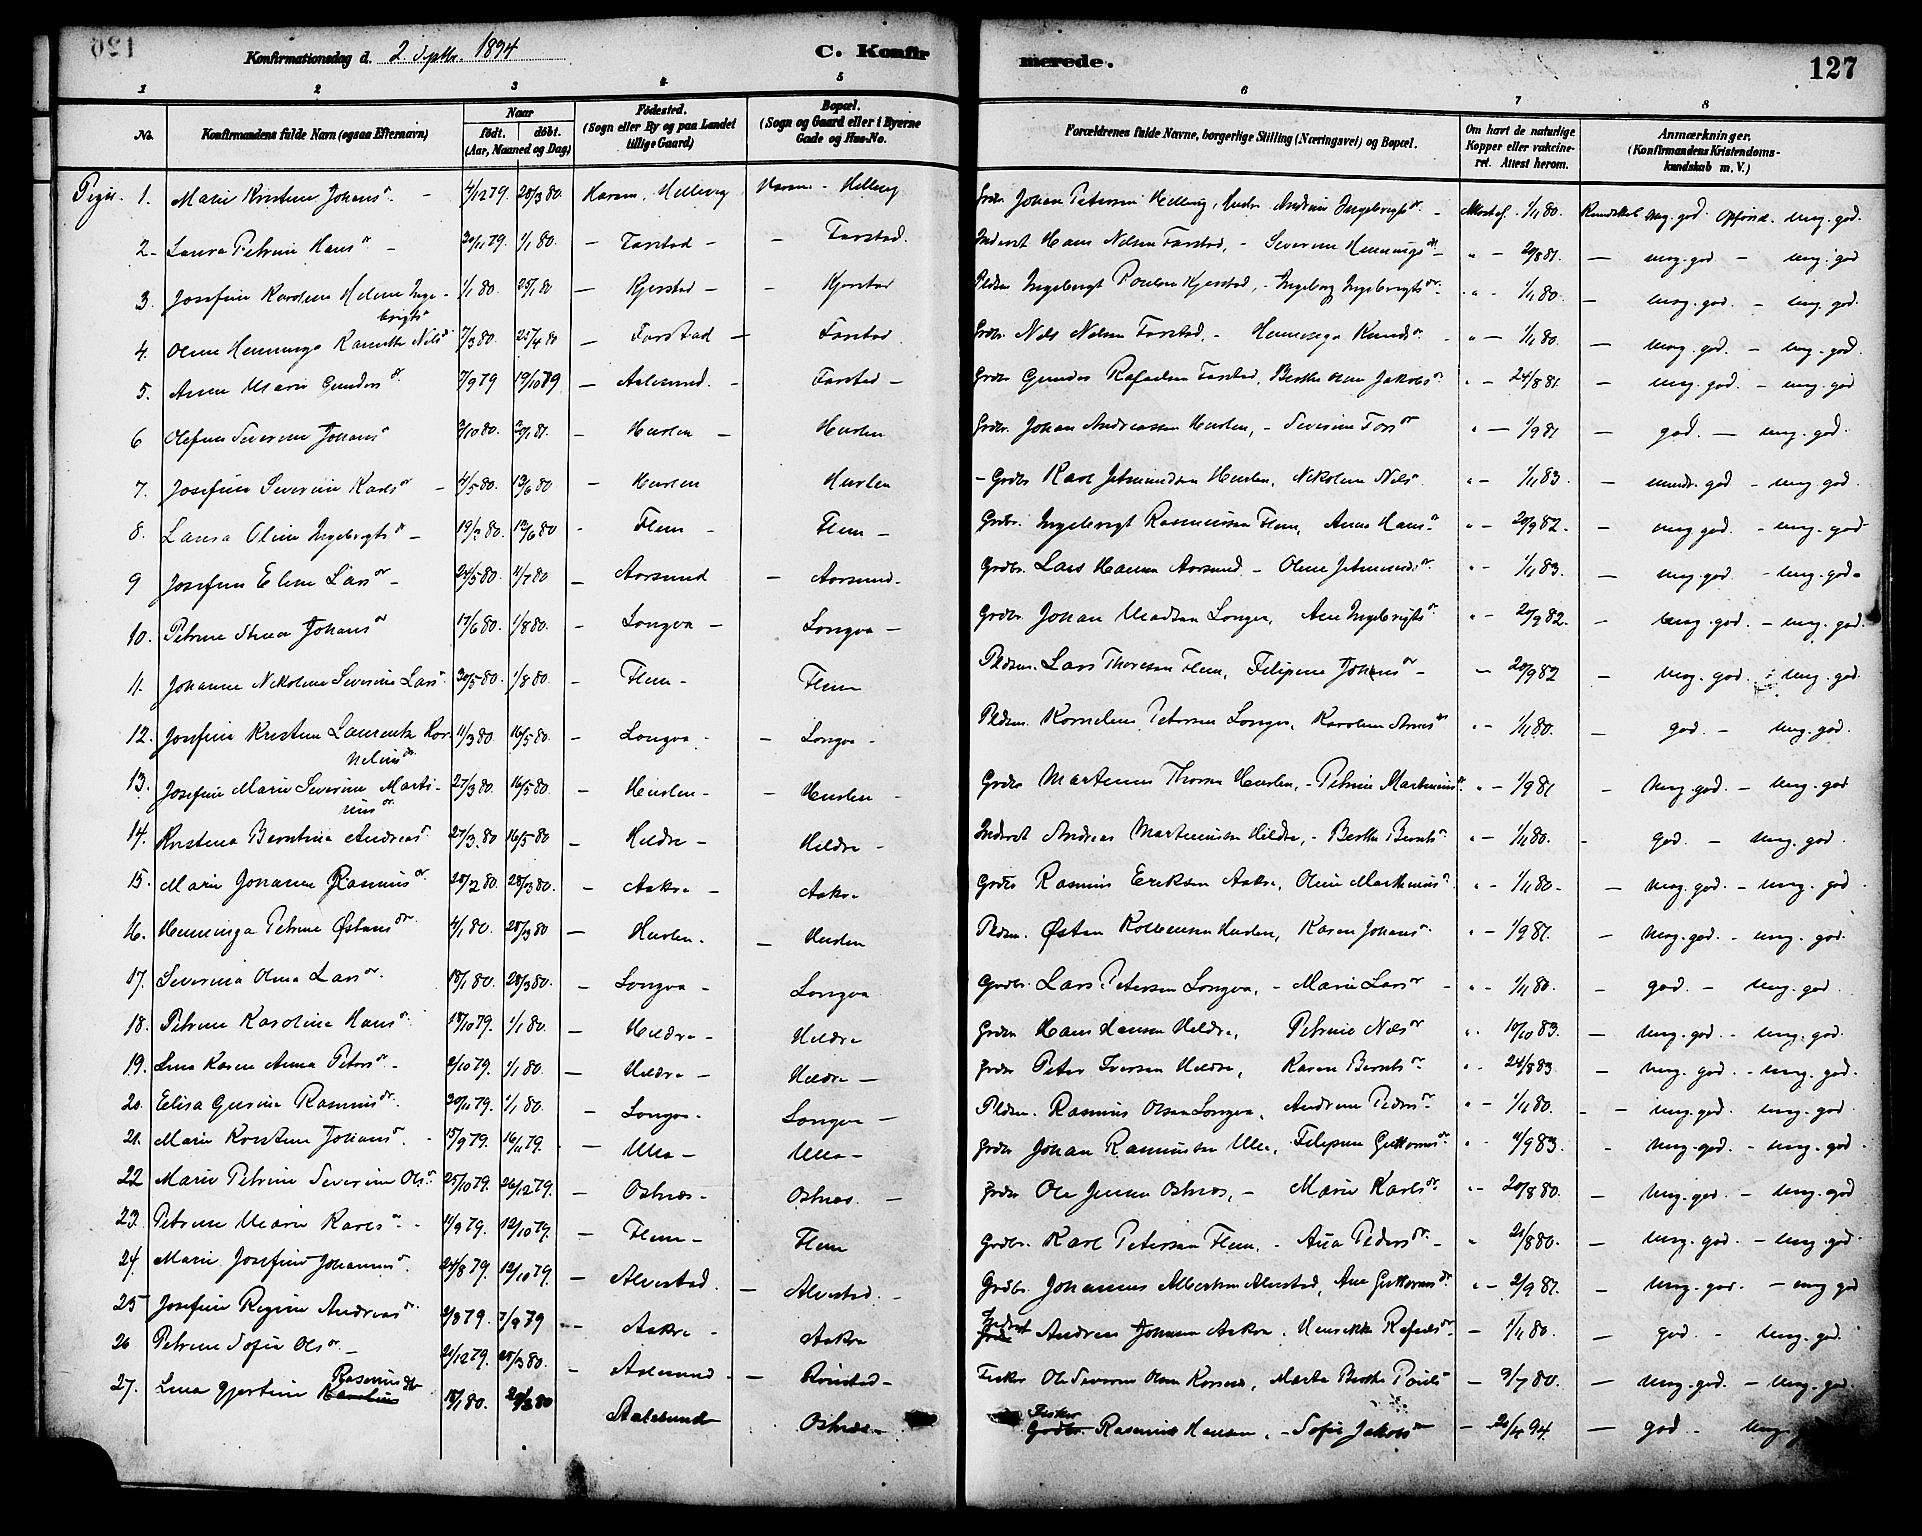 126
Konfirmationsdag d. 2. Septbr. 1894
C. Konfirmerede.
127
1 2 3 4 5 6 7 8
No. Konfirmandens fulde Navn (ogsaa Efternavn) Naar født. døbt. (Aar, Maaned og Dag) Fødested. (Sogn eller By og paa Landet tillige Gaard) Bopæl. (Sogn og Gaard eller i Byerne Gade og Hus-No. Forældrenes fulde Navne, borgerlige Stilling (Næringsvei) og Bopæl. Om havt de naturlige Kopper eller vakcineret. Attest herom. Anmærkninger. (Konfirmandens Kristendomskundskab m. V.)
Piger. 1. Marie Kristine Johansdr. 4/12 79. 28/3 80. Haram, Hellevig Haram - Hellevig Grdbr. Johan Petersen Hellevig, Andrine Ingebrigtsdr. 1/11 80. Kundskab meg. god. Opførsel meg. god.
2. Laura Petrine Hansdr. 30/11 79. 1/1 80. - Farstad - - Farstad. Inderst Hans Nilsen Farstad, - Severine Henningsdr. " - 20/8 81. - meg. god - meg. god
3. Josefine Karoline Helene Ingebrigtsdr. 1/1 80. 25/1 80 - Kjerstad - - Kjerstad Pldsm. Ingebrigt Poulsen Kjerstad, - Ingeborg Ingebrigtsdr. " - 1/11 80. - meg. god. - meg. god.
4. Oline Henninga Nilsdr. 7/3 80. 25/4 80 - Farstad - Farstad Grdbr. Nils Nilsen Farstad, - Henninga Knudsdr. " - 1/11 80. - meg. god. - meg. god.
5. Anne Marie Gundersdr. 7/9 79 19/10 79. - Aalesund. - Farstad - Grdbr. Gunder Rafaelsen Farstad, Berthe Jakobsdr. " - 24/8 81. - meg. god. - meg. god
6 Olefine Severine Johansdr. /10 80. /1 81. - Huslen - Huslen Grdbr. Johan Andreassen Huslen, - Severine " - 1/9 81 - god. - meg. god.
7. Josefine Severine Karlsdr. - 4/5 80. 13/6 80 - Huslen Huslen - Grdbr. Karl Huslen, Nikoline Nils " - 1/11 83. - god - meg god.
8. Laura Oline Ingebrigtsdr. - 19/ 80. 13/6 80 - Flem - Flem - Grdbr. Ingebrigt Rasmussen Flem, Anne Hansdr. " - 20/9 82. - meg god. - meg. god
9 Josefine Eline Larsdr. - 24/5 80. 11/7 80 - Aarsund - Aarsund. Grdbr. Lars Hansen Aarsund. - Oline " - 1/11 83. - meg. god. - meg. god.
10. Petrine Johansdr. 17/6 80. 1/8 80. - Longva - Longva - Grdbr. Johan Madsen Longva, Ane Ingebrigtsdr. " - 20/9 82. - meg. god. - meg. god.
11. Johanne Nikoline Severine Larsdr. 30/5 80. 1/8 80. - Flem - Flem Pldsm. Lars Thoresen Flem, Filipine Johansdr. - - 20/9 82 - meg. god. - meg. god.
12. Josefine Kristine Laurentze Kornelius dr. 11/3 80 16/5 80. - Longva - - Longva - Pldsm. Kornelius Petersen Longva, Karoline " - 1/11 80. - god. - meg. god.
13. Josefine Marie Severine Martiniusdr. 27/3 80. 16/5 80. - Huslen - - Huslen - Grdbr. Martinus Thorsen Huslen, - Petrine Martiniusdr. " - 1/9 81 - meg. god. - meg. god
14. Kristina Berntina Andreasdr. 27/3 80 16/5 80 - Hildre - Hildre - Inderst Andreas Martinussen Hildre, - Berthe Berntsdr. " - 1/11 80. - god. - meg. god.
15. Marie Johanne Rasmusdr. 28/2 80. 28/3 80. - Aakre - Aakre Grdbr. Rasmus Eriksen Aakre, Oline Martinusdr. " - 1/11 80. - meg. god. - meg. god
16. Henninga Petrine Østensdr. 4/1 80. 28/3 80 - Huslen. - Huslen Pldsm. Østen Kolbensen Huslen, Karen Johansdr. " - 1/9 81. - meg. god. - meg. god.
17. Severina Olina Larsdr. 18/1 80. 28/3 80. - Longva - Longva Grdbr. Lars Petersen Longva, - Marie Larsdr. - " - 1/11 80. - god. - meg. god.
18. Petrine Karoline Hansdr. 18/10 79. 1/1 80. - Hildre - Hildre Grdbr. Hans Hansen Hildre, Petrine Nilsdr. " - 10/10 83. - meg. god. - meg. god.
19. Lina Karen Anna Petersdr. - 2/10 79. 1/1 80. - Hildre - Hildre - Grdbr. Peter Iversen Hildre, Karen Berntsdr. " - 24/8 83 - meg. god. - meg. god.
20. Elisa Gusine Rasmusdr. 30/11 79. 1/1 80. - Longva - Longva - Pldsm. Rasmus Olsen Longva, Andrine Pedersdr. " - 1/11 80. - - meg. god. meg. god.
21. Marie Kristine Johansdr. - 15/9 79. 16/11 79. - Ulla - Ulla - Grdbr. Johan Rasmussen Ulla, Filipine Guttormsdr. " - 11/9 83. - meg. god. - meg. god
22 Marie Petrine Severine Olsdr. 25/10 79. 26/12 79. - Ostnes - Ostnes. - Grdbr. Ole Jensen Ostnes, - Marie Karlsdr. " - 20/8 80. - meg. god - meg. god
23. Petrine Marie Karlsdr. - 11/9 79. 12/10 79. - Flem - Flem Grdbr. Karl Petersen Flem, - Ana Pedersdr. - " 21/8 80. - meg. god - meg. god.
24. Marie Josefine Johannesdr. 24/8 79. 12/10 79. - Alvestad. - Alvestad. - Grdbr. Johannes Albertsen Alvestad, Ane Guttormsdr. " - 2/9 81. - meg. god. - meg god
25 Josefine Regine Andreasdr. 2/8 79. 7/9 79 - Aakre - Aakre Inderst Andreas Johnsen Aakre, Henrikke Rafaelsdr. - 1/11 80. - god. - meg. god.
26 Petrine Sofie Olsdr. - 21/12 79. 28/3 80. - Aalesund - - Rønstad - Fisker Ole Severin Olsen, Marte Berthe Poulsdr. - 9/7 80. - meg. god. - meg. god.
27. Lina Gjertine Rasmusdtr 18/1 80. 29/3 80 Aalesund Ostnes - Fisker Rasmus Hansen, - Sofie Jakobsdr. - 21/4 94. - god - meg.